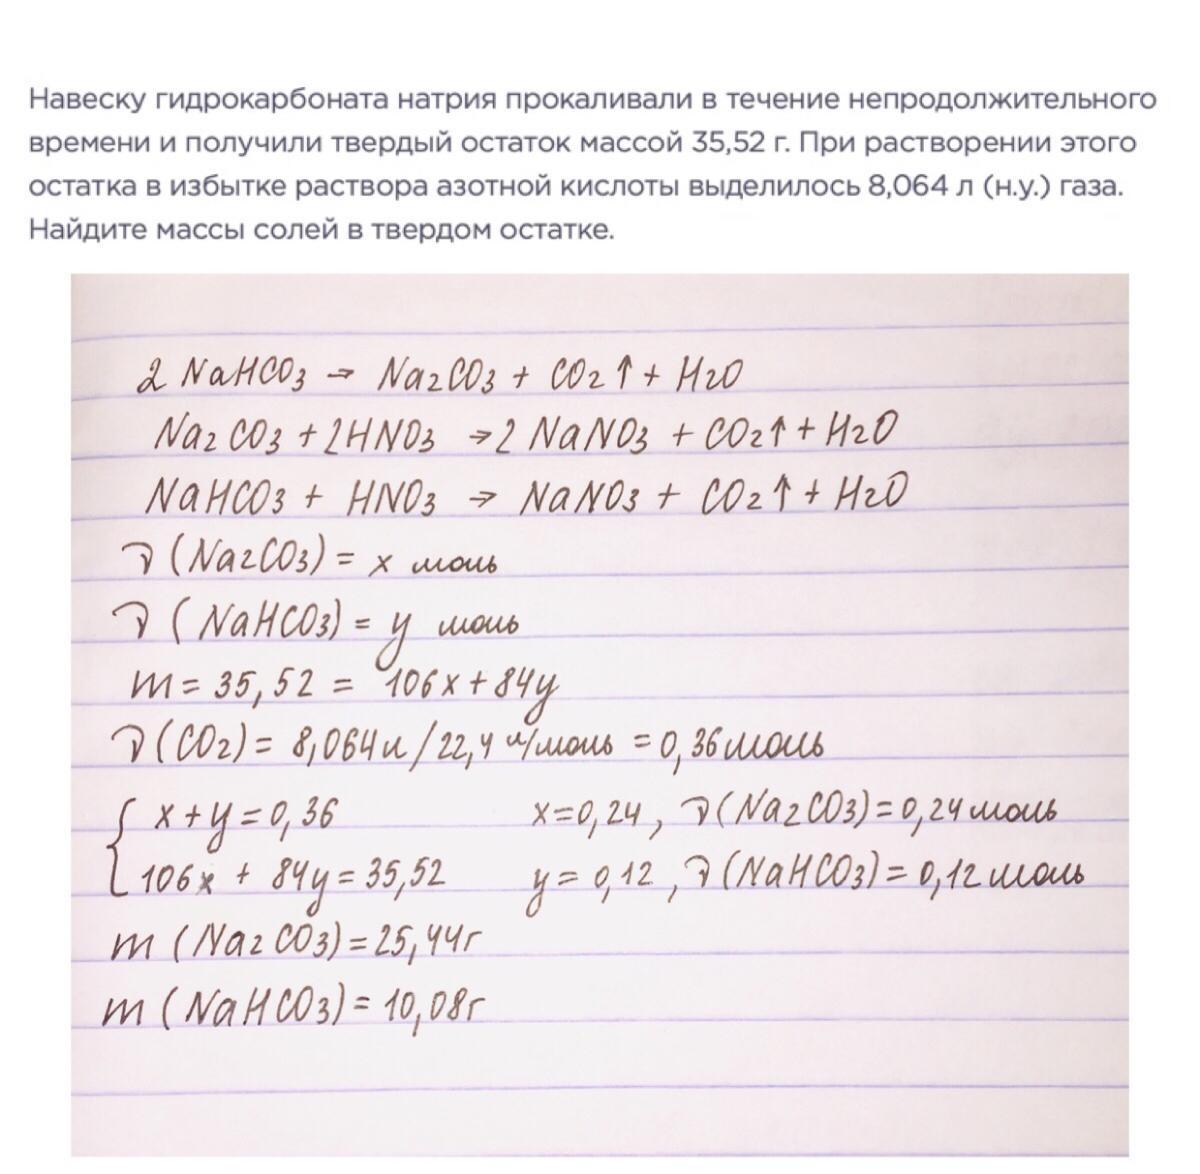 Навеску гидрокарбоната натрия прокаливали в течение непродолжительного
времени и получили твердый остаток массой 35,52 г. При растворении этого
остатка в избытке раствора азотной кислоты выделилось 8,064 л (н.у.) газа.
Найдите массы солей в твердом остатке.
2 NaHCO3 → Na2CO3 + CO2↑ + H2O
Na2CO3 + 2HNO3 → 2 NaNO3 + CO2↑ + H2O
NaHCO3 + HNO3 → NaNO3 + CO2↑ + H2O
ν (Na2CO3) = x моль
ν (NaHCO3) = y моль
m = 35,52 = 106x + 84y
ν (CO2) = 8,064л / 22,4 л/моль = 0,36моль
x + y = 0,36 x=0,24, ν(Na2CO3)=0,24моль
106x + 84y = 35,52 y = 0,12, ν(NaHCO3) = 0,12моль
m (Na2CO3) = 25,44г
m (NaHCO3) = 10,08г